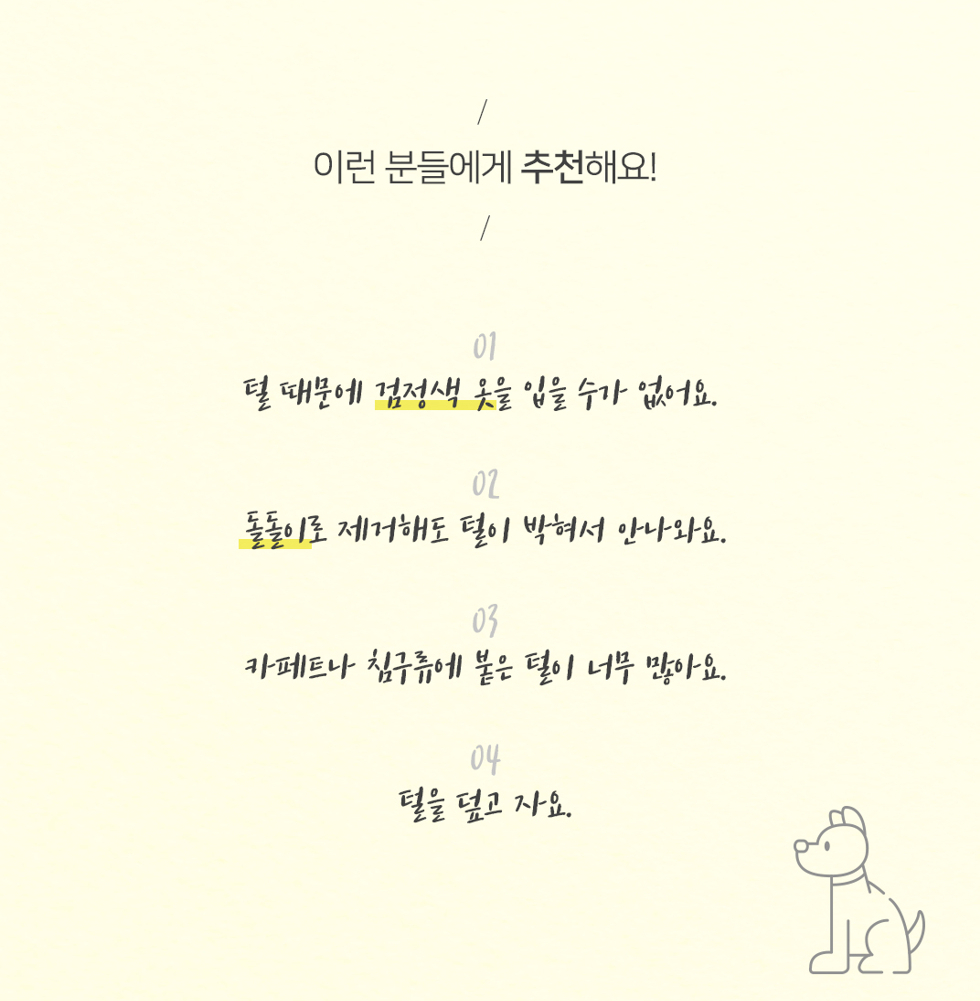 /
이런 분들에게 추천해요!
/
01
털 때문에 검정색 옷을 입을 수가 없어요.
02
돌돌이로 제거해도 털이 박혀서 안나와요.
03
카페트나 침구류에 붙은 털이 너무 많아요.
04
털을 덮고 자요.